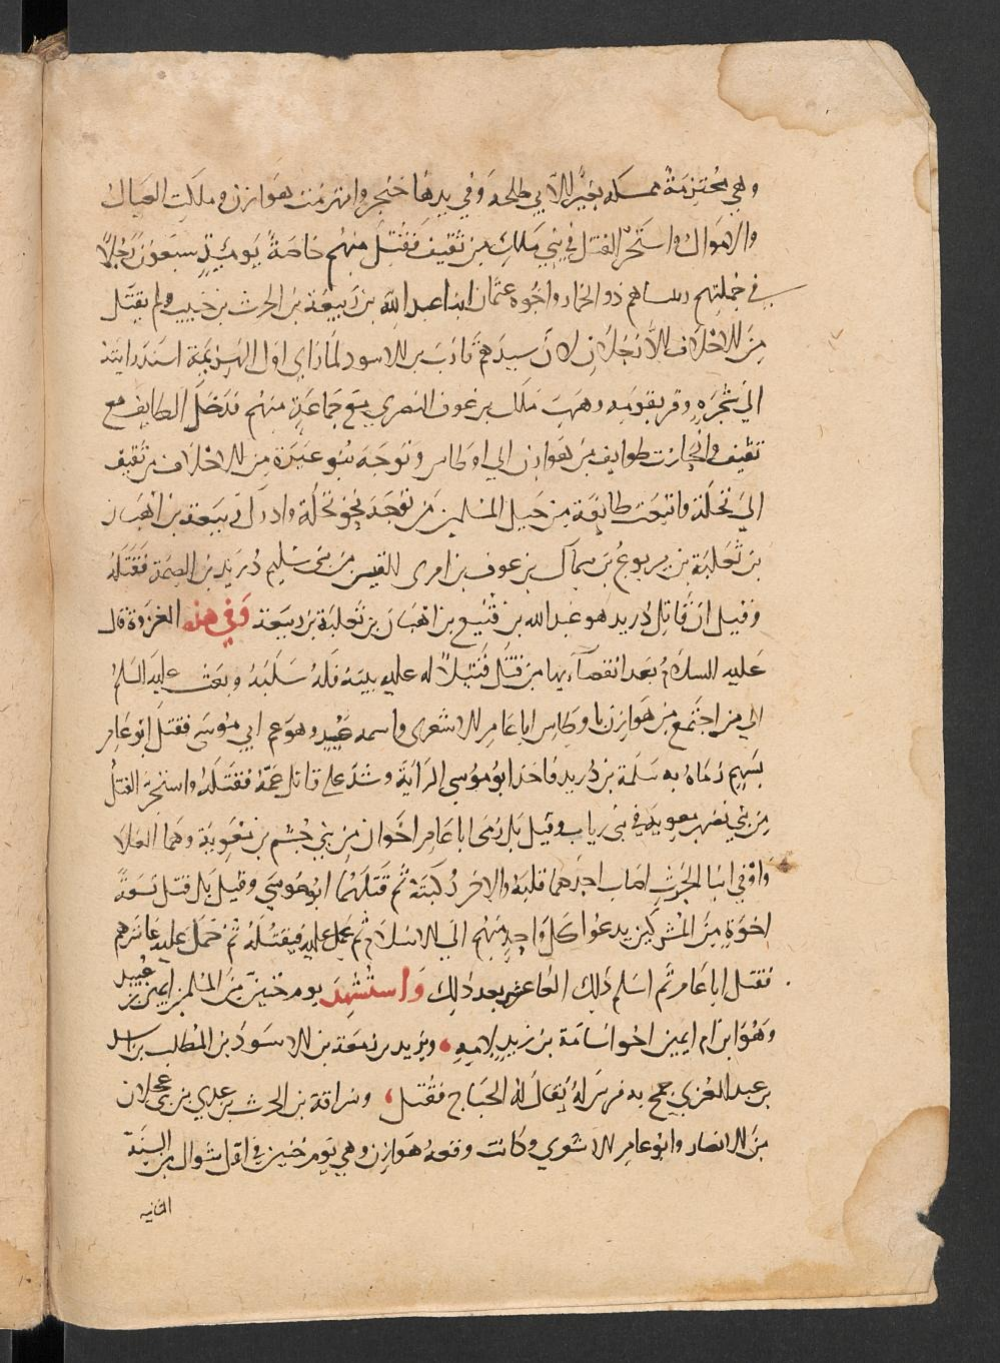 وهي محتزمة ممسكة بعير لأبي طلحة وفي يدها خنجر وانهزمت هوازن وملكت العيال
والاموال واستحر القتل في بني مالك من ثقيف فقتل منهم خاصة يومئذ سبعون رجلا
في جملتهم رييساهم ذو الخمار واخوه عثمان ابنا عبد الله بن ربيعة بن الحرث بن حبيب ولم يقتل
من الاحلاف الا رجلان لان سيدهم قارب بن الاسود لما راي اول الهزيمة اسند رايته
الي شجره وفر بقومه وهرب ملك بن عوف النصري مع جماعة منهم فدخل الطايف مع
ثقيف وانحازت طوايف من هوازن الي اوطاس وتوجه بنو غيرة من الاحلاف من ثقيف
الي نخلة واتبعت طايفة من خيل المسلمين من توجه نحو نخلة وادرك ربيعة بن اهبان
بن ثعلبة بن يربوع بن سماك بن عوف بن امرى القيس من بني سليم دريد بن الصمة فقتله
وقيل ان قاتل دريد هو عبد الله بن قنيع بن اهبان بن ثعلبة بن ربيعة وفي هذه الغزوة قال
عليه السلام بعد انقضآيها من قتل قتيلا له عليه بينة فله سلبه وبعث عليه السلم
الي من اجتمع من هوازن باوطاس ابا عامر الاشعري واسمه عبيد وهو عم ابي موسى فقتل ابو عامر
بسهم رماه به سلمة بن دريد فاخذ ابو موسي الراية وشد علي قاتل عمه فقتله واستحر القتل
من بني نصر بن معوية في بني رياب وقيل بل رمى ابا عامر اخوان من بني جشم بن معوية وهما العلا
واوفي ابنا الحرث اصاب احدهما قلبه والاخر ركبته ثم قتلهما ابو موسي وقيل بل قتل تسعة
اخوة من المشركين يدعوا كل واحد منهم الي الاسلام ثم يحمل عليه فيقتله ثم حمل عليه عاشرهم
فقتل ابا عامر ثم اسلم ذلك العاشر بعد ذلك واستشهد يوم حنين من المسلمين ايمن بن عبيد
وهو ابن ام ايمن اخو اسامة بن زيد لامه ويزيد بن زمعة بن الاسود بن المطلب بن اسد
بن عبد العزي جمح به فرس له يقال له الجناح فقتل وسراقة بن الحرث بن عدي من بني عجلان
من الانصار وابو عامر الاشعري وكانت وقعة هوازن وهي يوم حنين في اول شوال من السنة
الثانيه